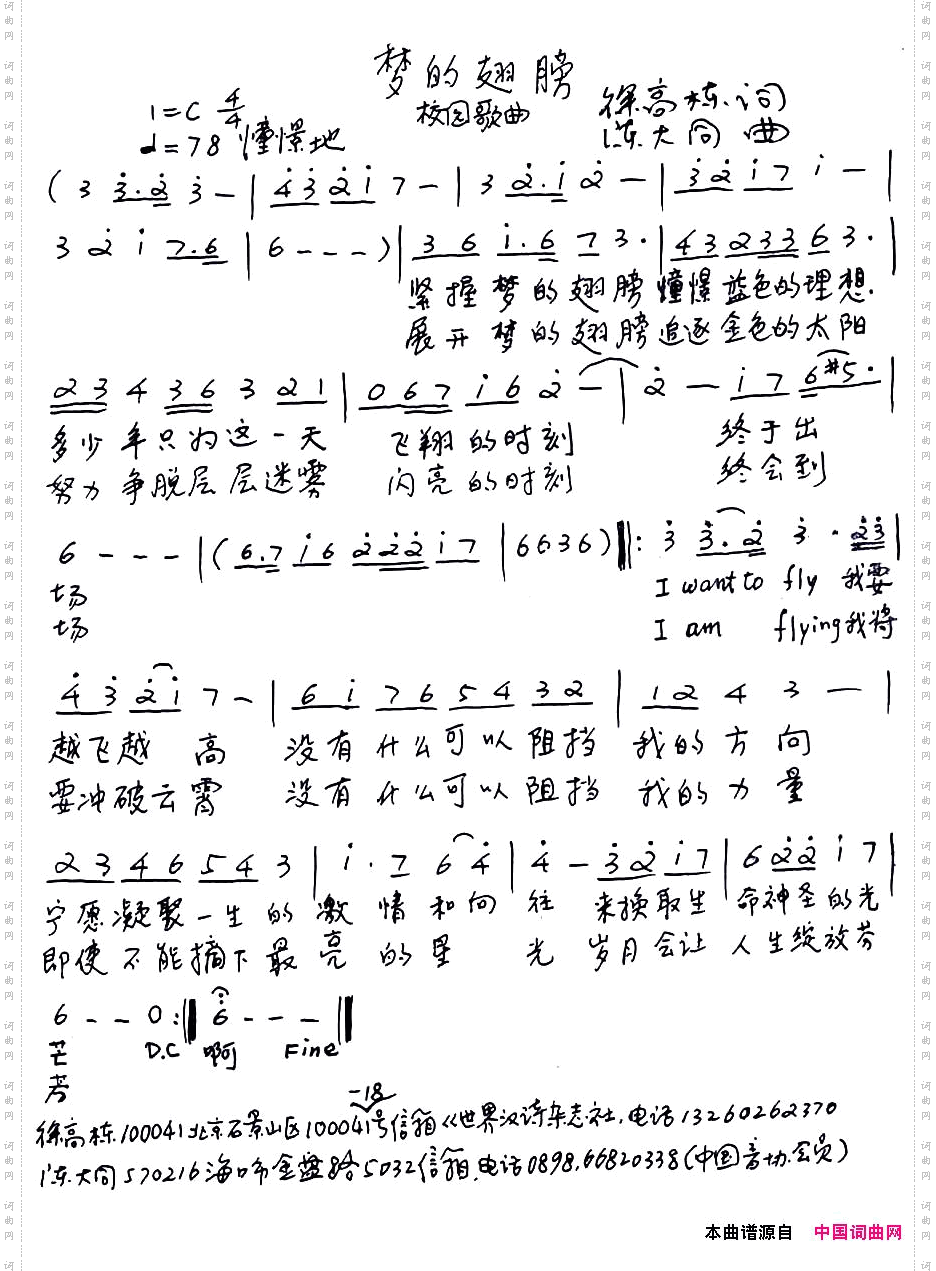 梦的翅膀
校园歌曲
1=C 4/4
徐高栋 词
♩=78 憧憬地
陈大同 曲
( 3 3̇.2̇ 3̇ - | 4̇3̇ 2̇i 7 - | 3 2̇.i 2̇ - | 3̇2̇ i7 i - |
3 2̇ i 7.6 | 6 - - - ) | 3 6 i.6 7 3· | 43 233 6 3· |
紧握梦的翅膀 憧憬蓝色的理想.
展开梦的翅膀 追逐金色的太阳
23 4 36 3 21 | 0 67 i6 2̇ - | 2̇ - i7 6#5· |
多少年只为这一天 飞翔的时刻 终于出
努力争脱层层迷雾 闪亮的时刻 终会到
6 - - - | (6.7 i6 2̇2̇2̇ i7 | 6636) ‖: 3̇ 3̇.2̇ 3̇ · 2̇3̇ |
场 I want to fly 我要
场 I am flying 我将
4̇3̇ 2̇i 7 - | 6i 76 54 32 | 12 4 3 — |
越飞越高 没有什么可以阻挡 我的方向
要冲破云霄 没有什么可以阻挡 我的力量
23 46 54 3 | i · 7 6 4̇ | 4̇ - 3̇2̇ i7 | 6 2̇2̇ i 7 |
宁愿凝聚一生的激情和向往 来换取生命神圣的光
即使不能摘下最亮的星光 岁月会让人生绽放芬
6 - - 0 :‖ 6̇ - - - ‖
芒 D.C 啊 Fine
芳
-18
徐高栋.100041北京石景山区100041号信箱《世界汉诗杂志社,电话13260262370
陈大同 570216 海口市金盘8合5032信箱,电话0898,66820338(中国音协.会员)
本曲谱源自 中国词曲网